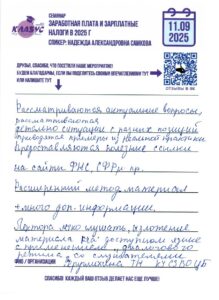 КЛАБУС
СЕМИНАР
ЗАРАБОТНАЯ ПЛАТА И ЗАРПЛАТНЫЕ
НАЛОГИ В 2025 Г
СПИКЕР: НАДЕЖДА АЛЕКСАНДРОВНА САМКОВА
11.09
2025
ДРУЗЬЯ, СПАСИБО, ЧТО ПОСЕТИЛИ НАШЕ МЕРОПРИЯТИЕ!
БУДЕМ БЛАГОДАРНЫ, ЕСЛИ ВЫ ПОДЕЛИТЕСЬ СВОИМИ ВПЕЧАТЛЕНИЯМИ ТУТ
ИЛИ НАПИШИТЕ ТУТ
ОТЗЫВЫ В ВК
Рассматриваются актуальные вопросы,
рассматриваются
детально ситуации с разных позиций
Приводятся примеры из реальной практики
Предоставляются полезные ссылки
на сайты ФНС, СФР и пр.
Расширенный метод. материал
+ много доп. информации.
Лектора легко слушать, изложение
материала доступном языке
с применением "диалогового
режима" со слушателями
ФИО / ОРГАНИЗАЦИЯ
СПАСИБО! КАЖДЫЙ ВАШ ОТЗЫВ ДЕЛАЕТ НАС ЕЩЕ ЛУЧШЕ!